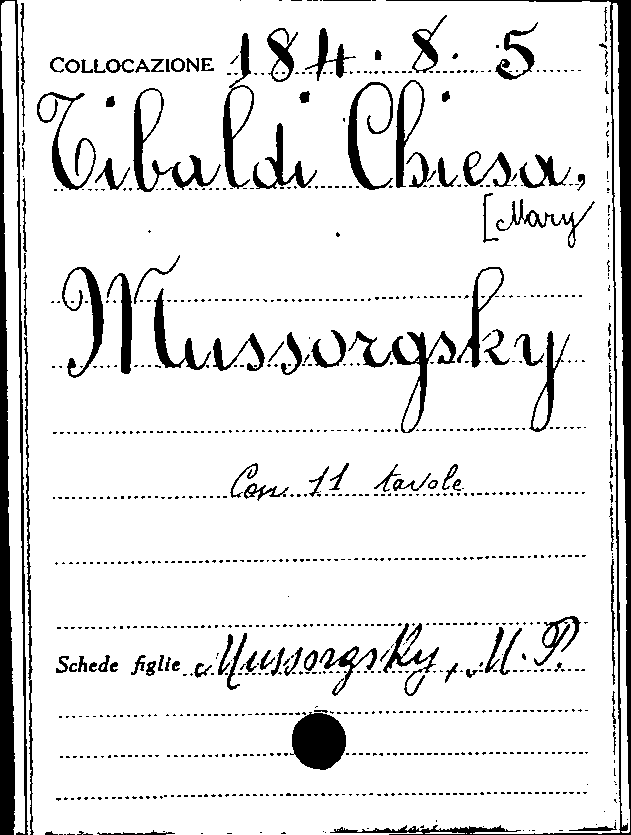 COLLOCAZIONE 184. 8. 5
Tibaldi Chiesa,
[Mary
Mussorgsky
Con 11 tavole
Schede figlie Mussorgsky, M. P.